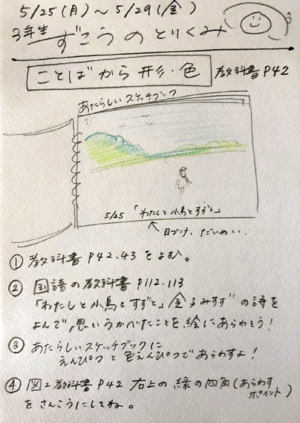 5/25(月)～5/29(金)
3年生 ずこうのとりくみ
ことばから形・色 教科書P42
あたらしいスケッチブック
5/25 「わたしと小鳥とすずと」
日づけ、だいめい、、
① 教科書P42.43をよむ。
② 国語の教科書P112.113
「わたしと小鳥とすずと」金子みすゞの詩を
よんで、思いうかべたことを絵にあらわそう!
③ あたらしいスケッチブックに
えんぴつと色えんぴつであらわすよ!
④ 図工教科書P42 右上の緑の四角(あらわす
ポイント)
をさんこうにしてね。